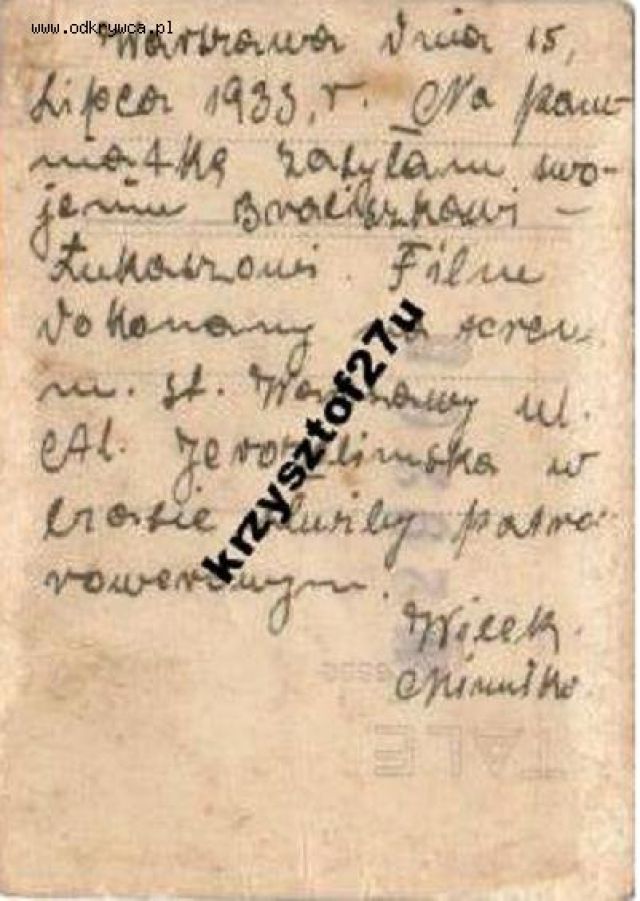 www.odkrywca.pl
Warszawa dnia 15,
Lipca 1933, r. Na pam-
miatkę zasyłam swo-
jemu Braciszkowi –
Łukaszowi. Film
dokonany na
m. st. Warszawy ul.
Al. Jerozolimska w
czasie służby
rowerowym.
Wicek.
krzysztof27u
TALE